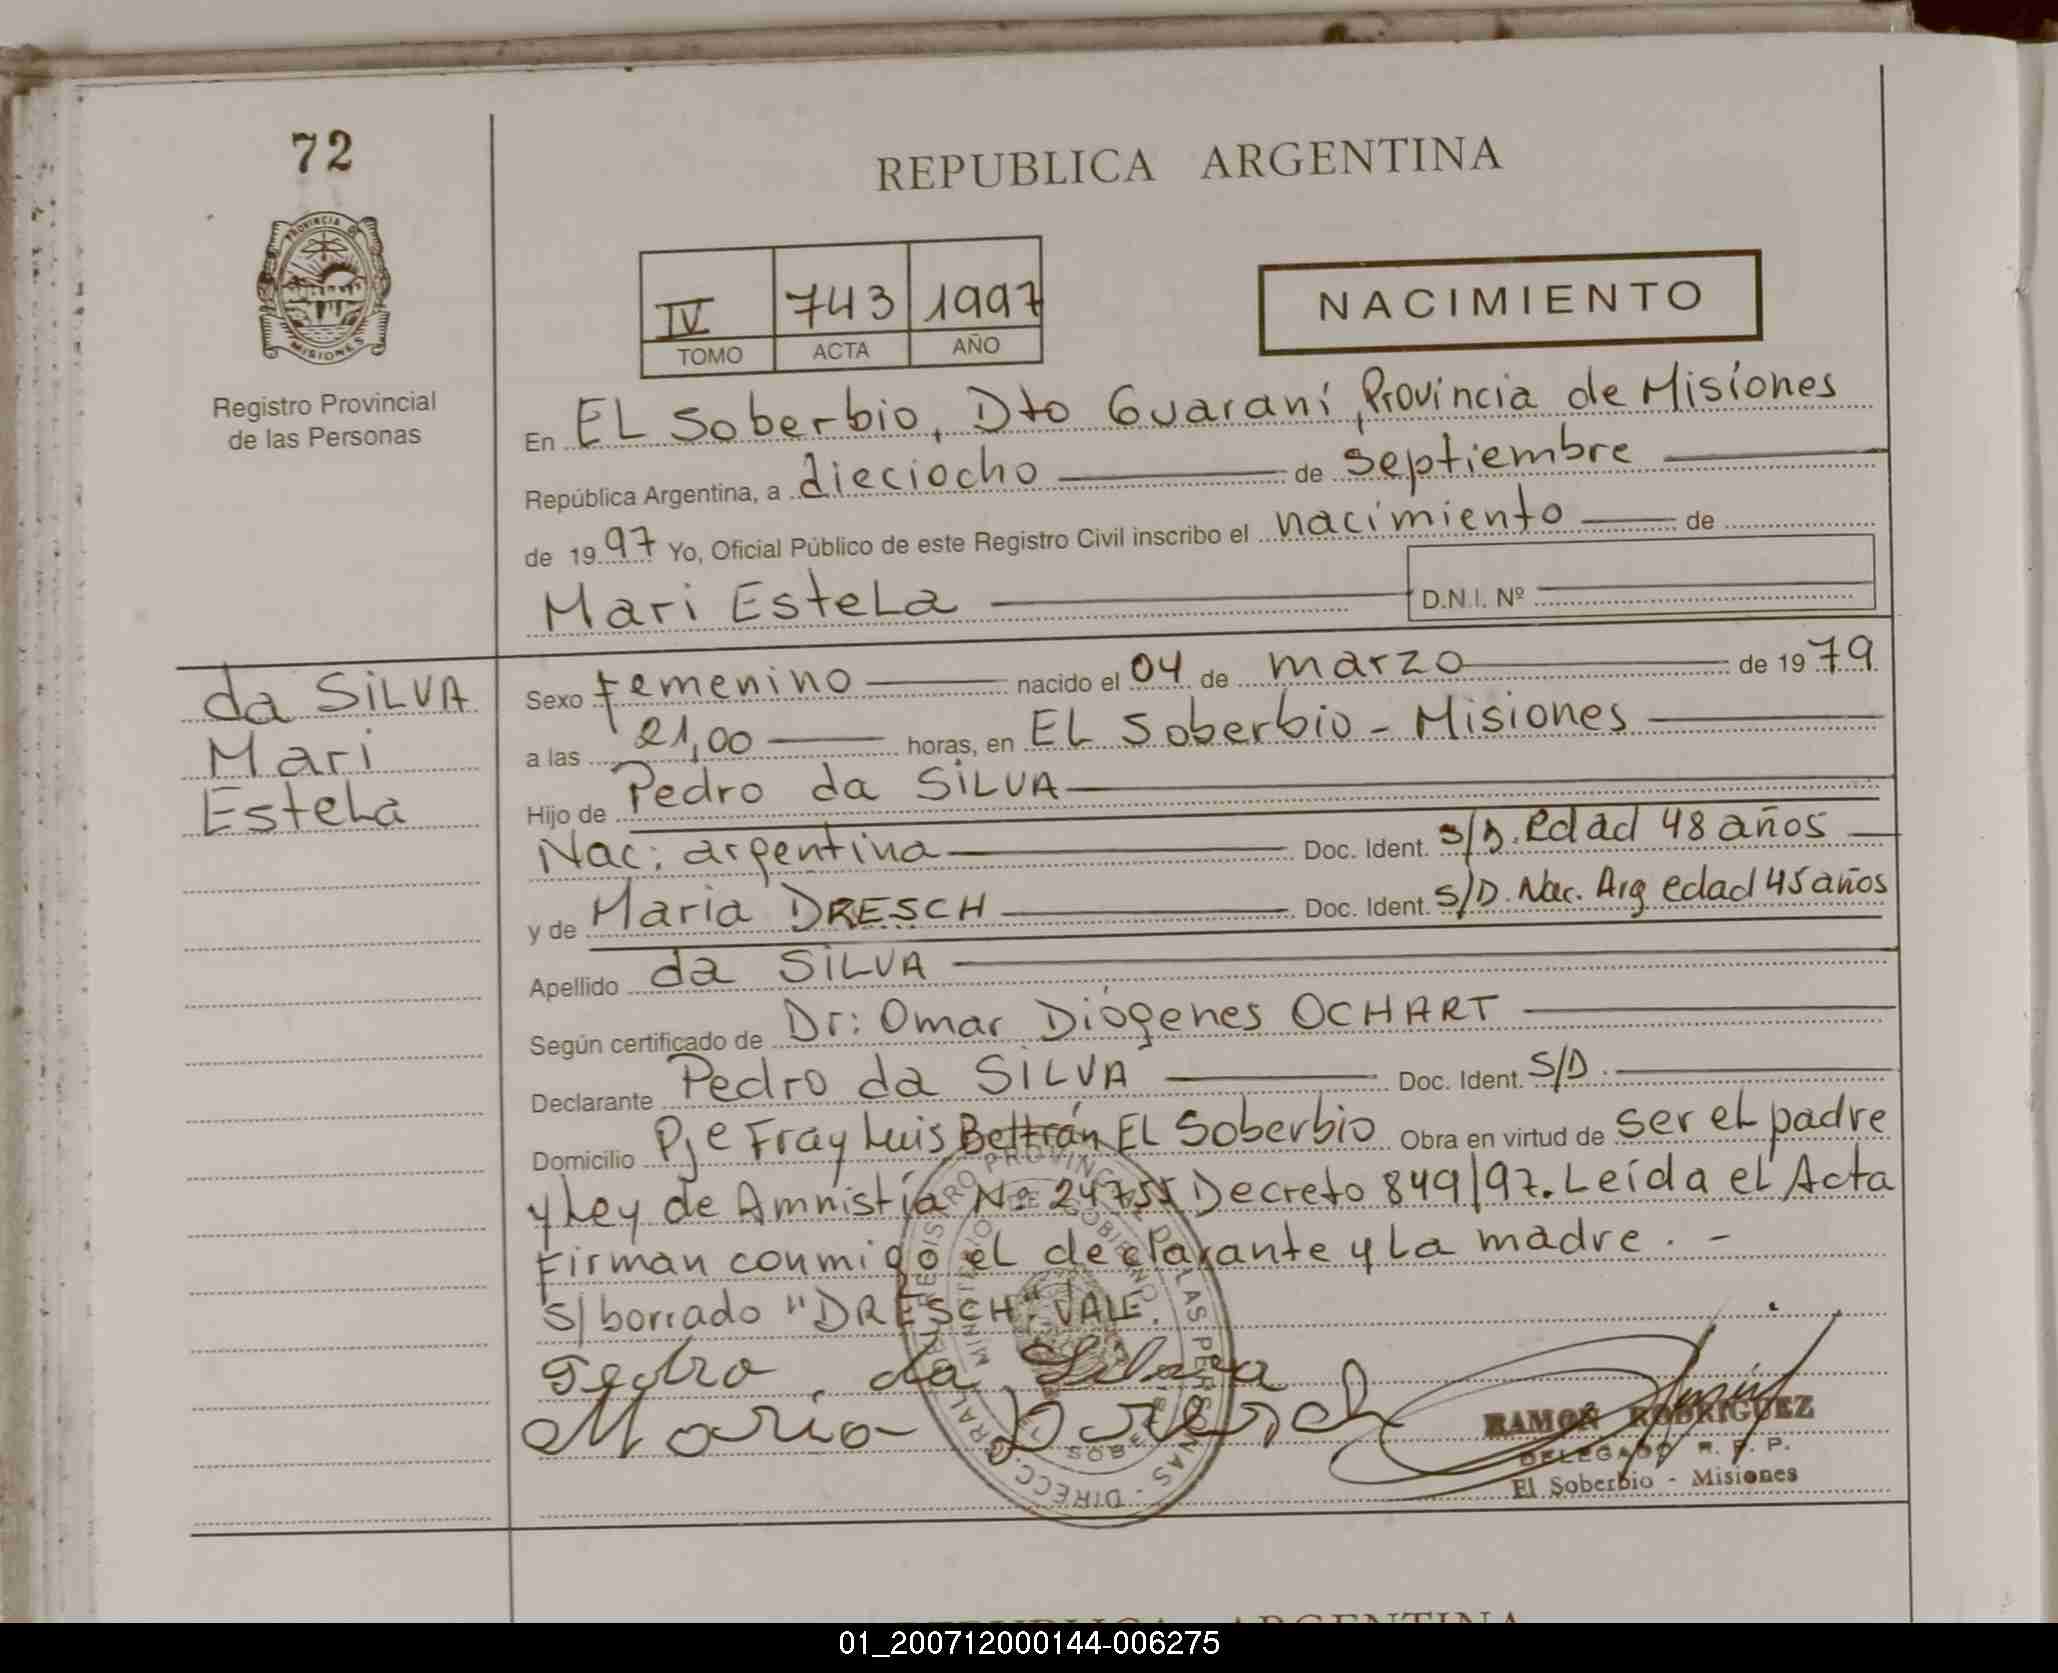 72
PROVINCIA DE
MISIONES
Registro Provincial
de las Personas
REPUBLICA ARGENTINA
IV 743 1997
TOMO ACTA AÑO
NACIMIENTO
En EL Soberbio, Dto Guaraní, Provincia de Misiones
República Argentina, a dieciocho de septiembre
de 1997 Yo, Oficial Público de este Registro Civil inscribo el nacimiento de
Mari Estela D.N.I. Nº
da SILVA
Mari
Estela
Sexo femenino nacido el 04 de marzo de 1979
a las 21,00 horas, en EL Soberbio - Misiones
Hijo de Pedro da SILVA
Nac: argentina Doc. Ident. S/D. edad 48 años
y de Maria DRESCH Doc. Ident. S/D. Nac. Arg edad 45 años
Apellido da SILVA
Según certificado de Dr: Omar Diógenes OCHART
Declarante Pedro da SILVA Doc. Ident. S/D.
Domicilio Pje Fray Luis Beltrán EL Soberbio Obra en virtud de ser el padre
y Ley de Amnistía Nº 24755 Decreto 849/97. Leída el Acta
Firman conmigo el declarante y la madre. -
S/ borrado "DRESCH" VALE.
Pedro da Silva
Maria Dresch
RAMON RODRIGUEZ
DELEGADO R. P. P.
El Soberbio - Misiones
REPUBLICA ARGENTINA
01_200712000144-006275